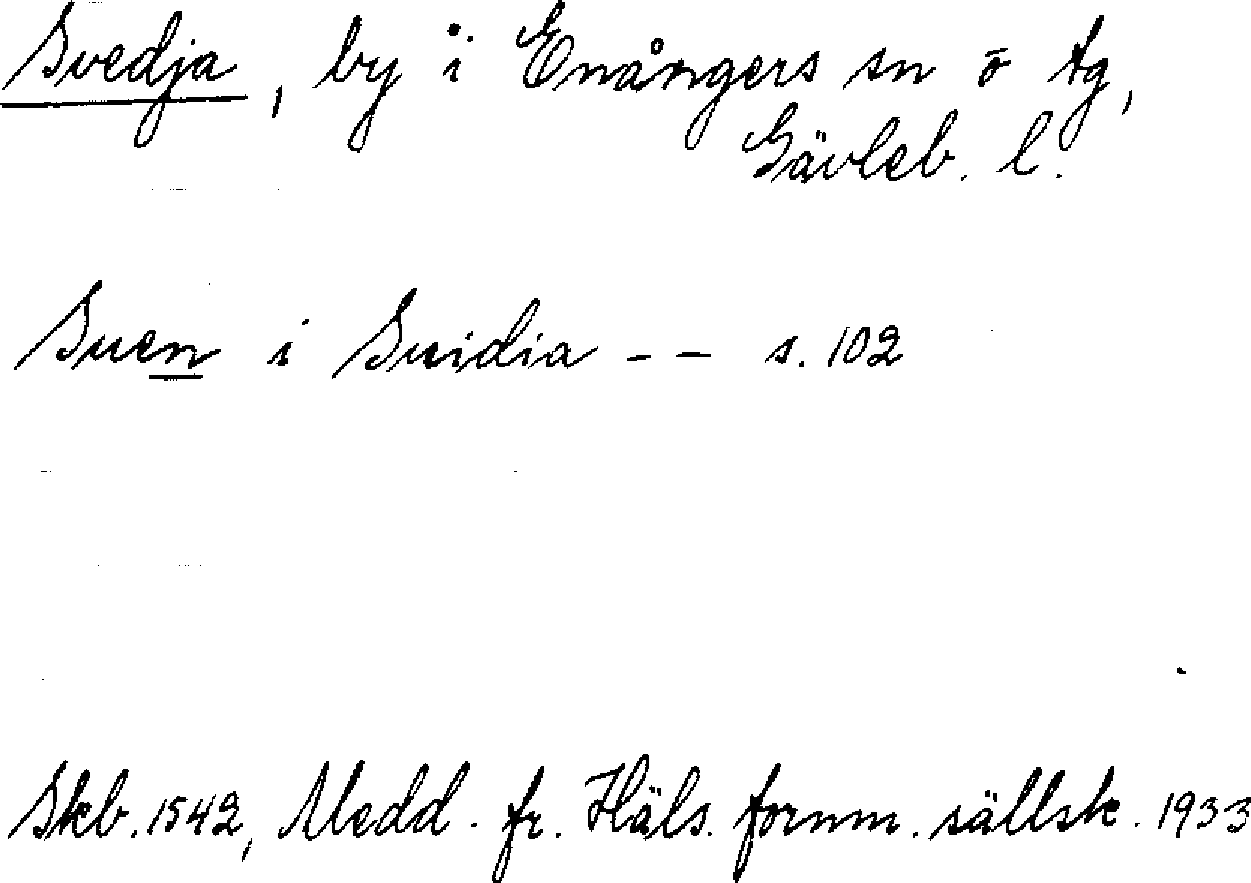 Svedja, by i Enångers sn o tg,
Gävleb. l.
Suen i Suidia - - s. 102
Skb. 1542, Medd. fr. Häls. fornm. sällsk. 1933